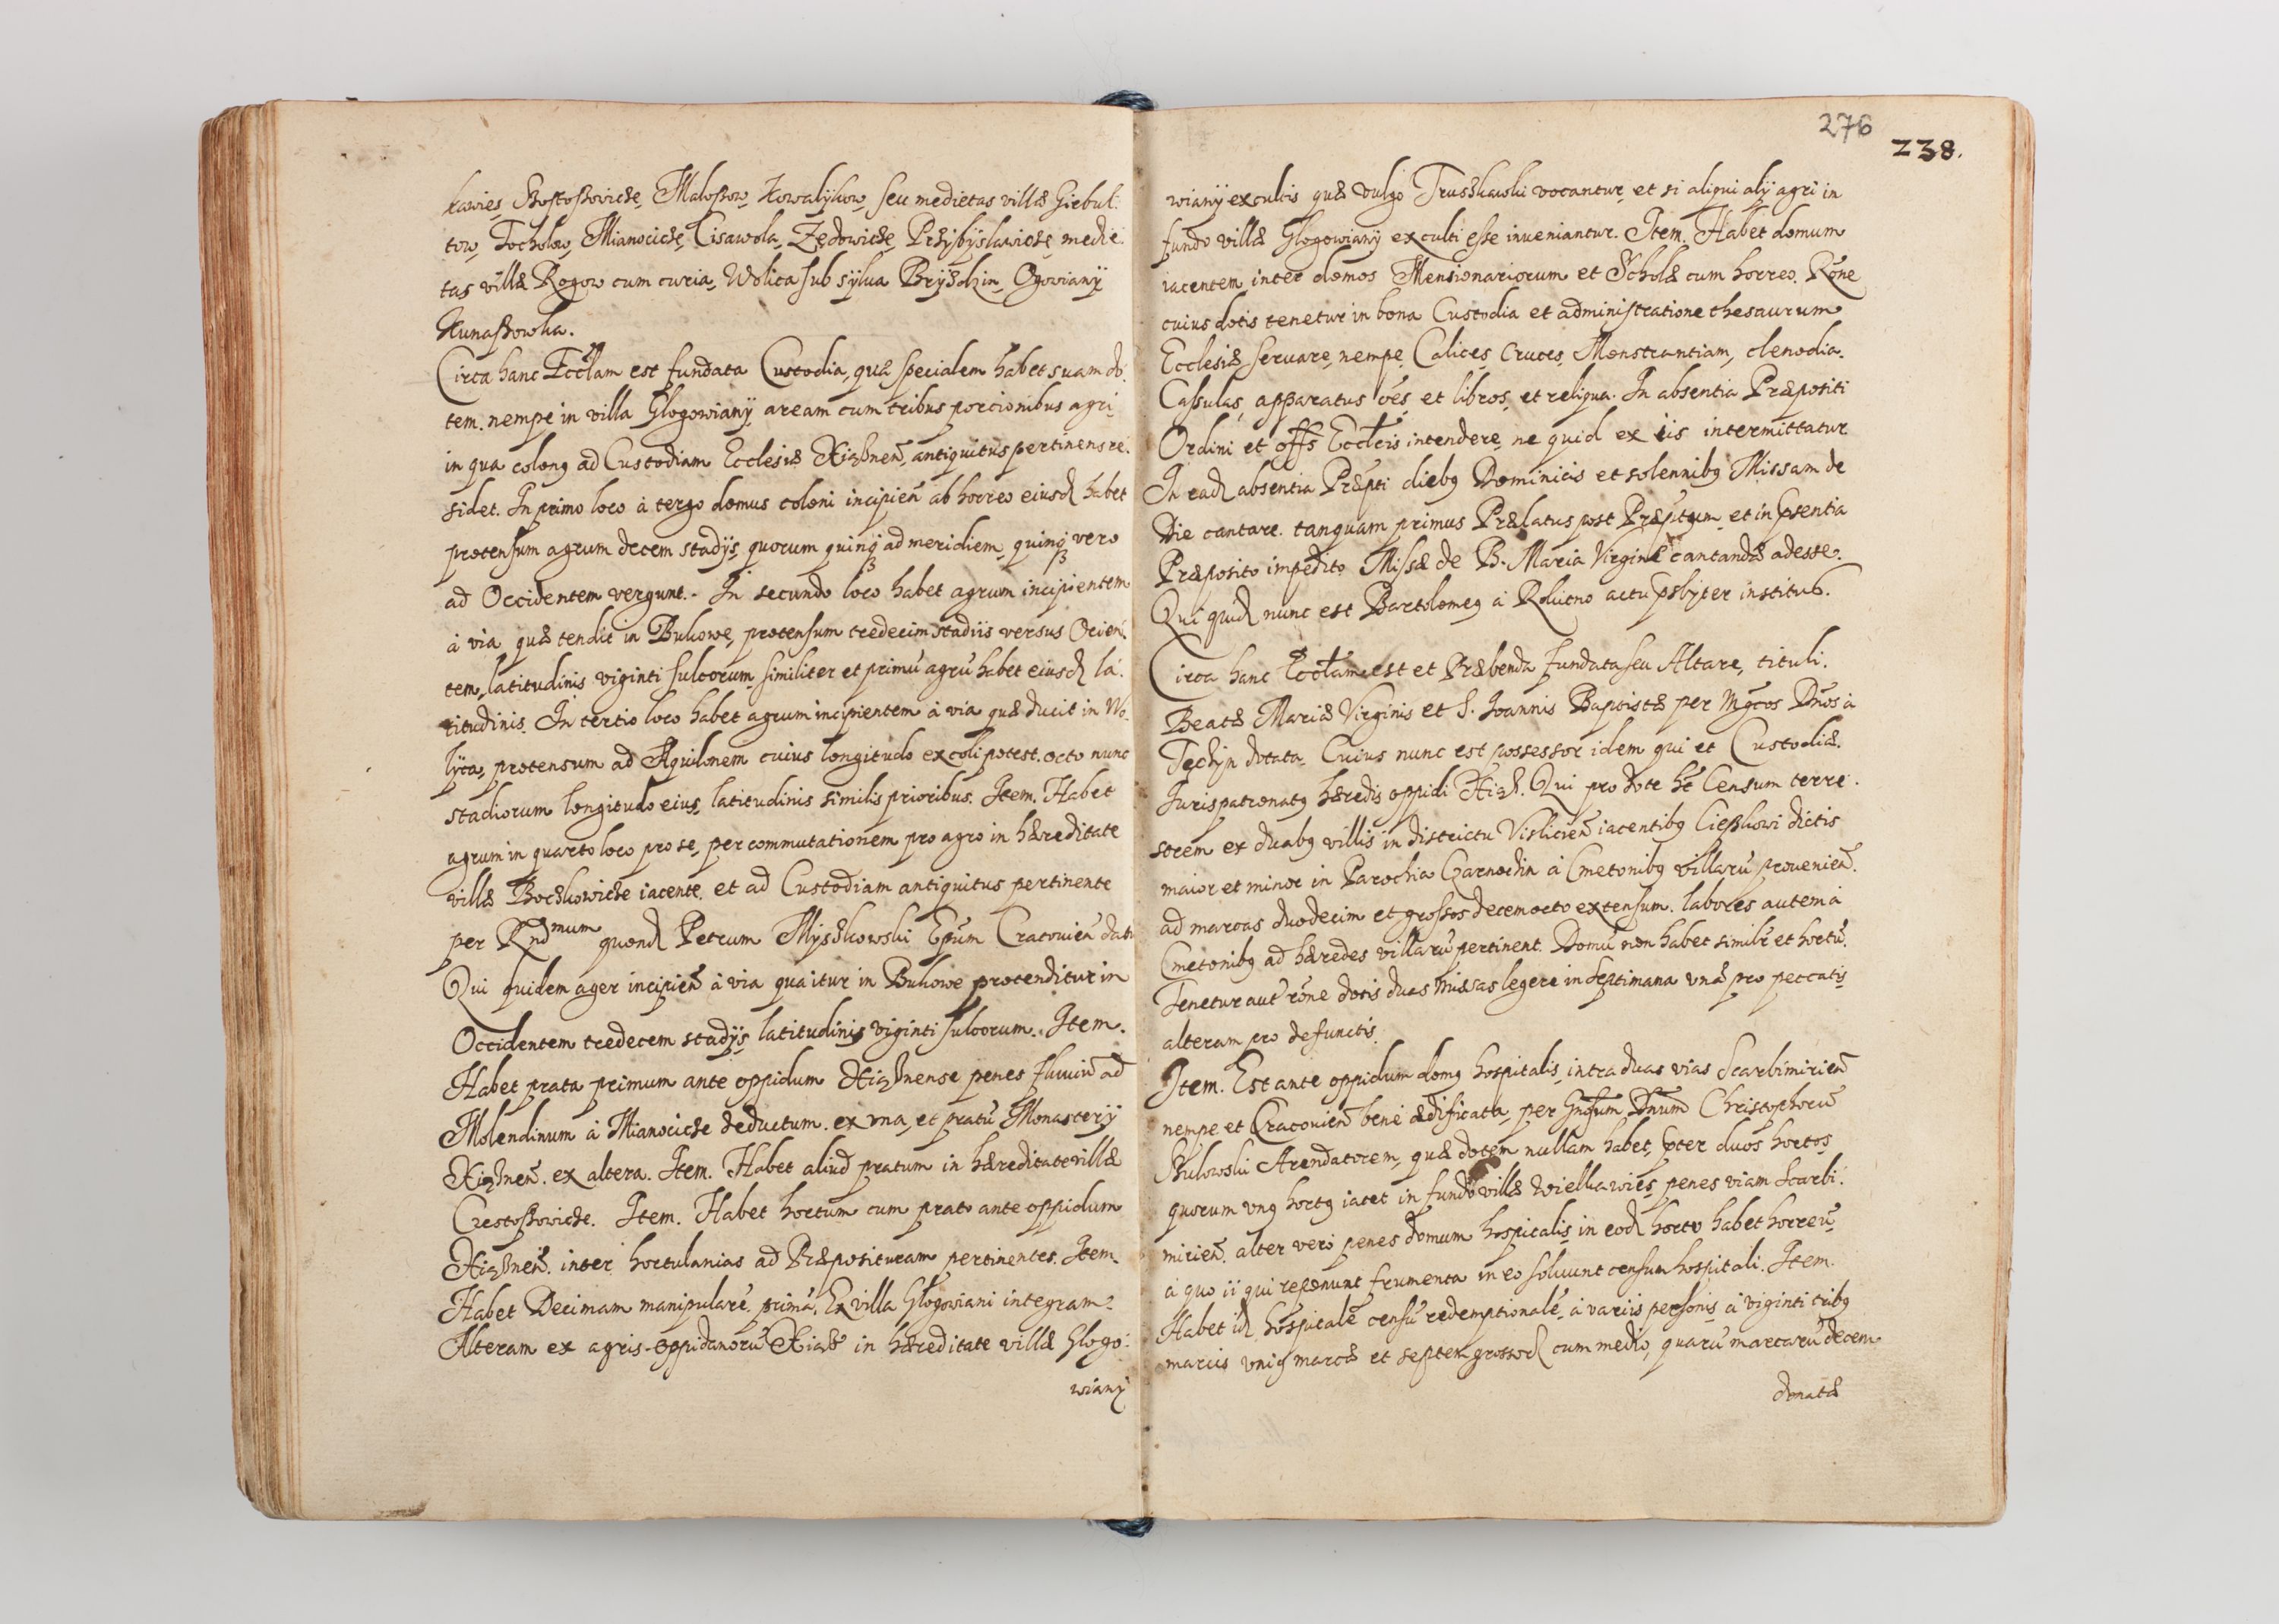 kawies, Chrostoßowicze, Maloßow, Kowalijkow, seu medietas villæ Giebul-
tow, Tochołow, Mianocicze, Cisawola, Zędowicze, Przÿbÿslawicze, medie-
tas villæ Rogow cum curia, Wolica sub sÿlva Brÿzdzin, Ogowianÿ
Kunaßowka.
Circa hanc Eccl̃am est fundata Custodia, quæ specialem habet suam do-
tem. nempe in villa Glogowianÿ aream cum tribus porcionibus agri,
in qua colonq ad Custodiam Ecclesiæ Xiążnen̄, antiquitus pertinens re-
sidet. In primo loco à tergo domus coloni incipien̄ ab horreo eiusd habet
protensum agrum decem stadijs, quorum quinq ad meridiem, quinq vero
ad Occidentem vergunt. In secundo loco habet agrum incipientem
à via, quæ tendit in Bukowe, protensum tredecim stadiis versus Orien-
tem, latitudinis viginti sulcorum, similiter et primū agrū habet eiusd la-
titudinis. In tertio loco habet agrum incipientem à via quæ ducit in Wo-
lÿca, protensum ad Aquilonem cuius longitudo excoli potest. octo nunc
stadiorum longitudo eius, latitudinis similis prioribus. Item. Habet
agrum in quarto loco pro se, per commutationem pro agro in hæreditate
villæ Boczkowicze iacente, et ad Custodiam antiquitus pertinente
per Rñdmum quond Petrum Mÿszkowski Epūm Cracovien̄ datū
Qui quidem ager incipien̄ à via qua itur in Bukowe protenditur in
Occidentem tredecem stadijs, latitudinis viginti sulcorum. Item.
Habet prata primum ante oppidum Xiążnense penes fluviū ad
Molendinum à Mianocicze deductum, ex vna, et pratū Monasterÿ
Xiążnen̄. ex altera. Item. Habet aliud pratum in hæreditate villæ
Crestoßowicze. Item. Habet hortum cum prato ante oppidum
Xiążnen̄. inter hortulanias ad Præposituram pertinentes. Item.
Habet Decimam manipularē. primā, Ex villa Glogowiani integram.
Alteram ex agris oppidanorū Xiąż in hæreditate villæ Glogo-
wianÿ
276
238.
wianÿ excultis quæ vulgo Truszkawski vocantur, et si aliqui alÿ agri in
fundo villæ Glogowianÿ exculti esse inveniantur. Item. Habet domum
iacentem inter domos Mensionariorum et Scholæ cum horreo. Rōne
cuius dotis tenetur in bona Custodia et administratione thesaurum
Ecclesiæ servare, nempe, Calices, Cruces, Monstrantiam, clenodia.
Casulas, apparatus oēs, et libros, et reliqua. In absentia Præpositi
Ordini et offs Eccleīs intendere, ne quid ex iis intermittatur
In ead absentia Præpti diebq Dominicis et solennibq Missam de
Die cantare. tanquam primus Prælatus post Præpitum, et in pn̄sentia
Præposito impedito Missæ de B. Maria Virgine cantandæ adesse.
Qui quid nunc est Bartolomeq à Rokitno actu psbÿter institus.
Circa hanc Eccl̃am est et Præbenda fundata seu Altare, tituli.
Beatæ Mariæ Virginis et S. Joannis Baptistæ per Mg̃cos Dnōs à
Tęczÿn dotata. Cuius nunc est possessor idem qui et Custodiæ.
Jurispatronatq hæredis oppidi Xiąż. Qui pro dote hēt Censum terre-
strem ex duabq villis in districtu Vislicien̄ iacentibq Cießkowi dictis
maior et minor in Parochia Czarnocin à Cmetonibq villarū provenien̄.
ad marcas duodecim et grossos decem octo extensum. labores autem à
Cmetonibq ad hæredes villarū pertinent. Domū non habet similr̄ et hortū.
Tenetur aut̄ rōne dotis duas missas legere in septimana vnā pro peccatis
alteram pro defunctis.
Item. Est ante oppidum domq hospitalis, intra duas vias Scarbimirien̄
nempe et Cracovien̄ bene ædificata, per Gnōsum Dnūm Christophorū
Bukowski Arendatorem, quæ dotem nullam habet, præter duos hortos
quorum vnq hortq iacet in fundo villæ Wielkawies, penes viam Scarbi-
mirien̄. alter vero penes domum hospitalis, in eod horto habet horreū
à quo ii qui reponunt frumenta in eo solvunt censum hospitali. Item.
Habet id hospitale censū redemptionalē à variis personis à viginti tribq
marcis vniq marcæ et septem grossorū cum medio, quarū marcarū decem
donatæ